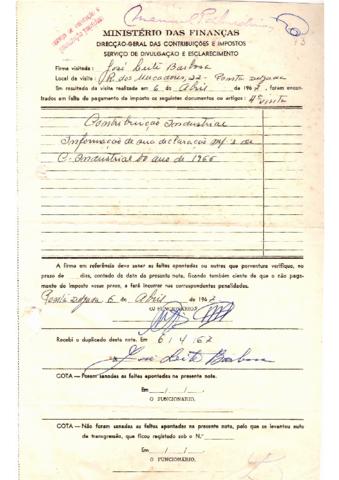 Manuel
93
SERVIÇO DE DIVULGAÇÃO E
ESCLARECIMENTO
MINISTÉRIO DAS FINANÇAS
DIRECÇÃO-GERAL DAS CONTRIBUIÇÕES E IMPOSTOS
SERVIÇO DE DIVULGAÇÃO E ESCLARECIMENTO
Firma visitada: José Leite Barbosa
Local de visita: R. dos Mercadores, 22 - Ponta Delgada
Em resultado da visita realizada em 6 de Abril de 1967, foram encon-
trados em falta de pagamento de imposto os seguintes documentos ou artigos: 4ª visita
Contribuição Industrial
Informação de sua declaração M/ de
C. Industrial do ano de 1966
A firma em referência deve sanar as faltas apontadas ou outras que porventura verifique, no
prazo de dias, contado da data da presente nota, ficando também ciente de que o não paga-
mento do imposto nesse prazo, a fará incorrer nas correspondentes penalidades.
Ponta Delgada 6 de Abril de 1967
O FUNCIONÁRIO
Recebi o duplicado desta nota. Em 6/4/67
José Leite Barbosa
COTA — Foram sanadas as faltas apontadas na presente nota.
Em / /
O FUNCIONÁRIO,
COTA — Não foram sanadas as faltas apontadas na presente nota, pelo que se levantou auto
de transgressão, que ficou registado sob o N.º
Em / /
O FUNCIONÁRIO,